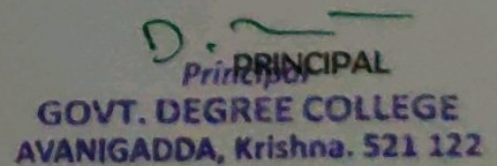 D.
Principal
PRINCIPAL
GOVT. DEGREE COLLEGE
AVANIGADDA, Krishna. 521 122